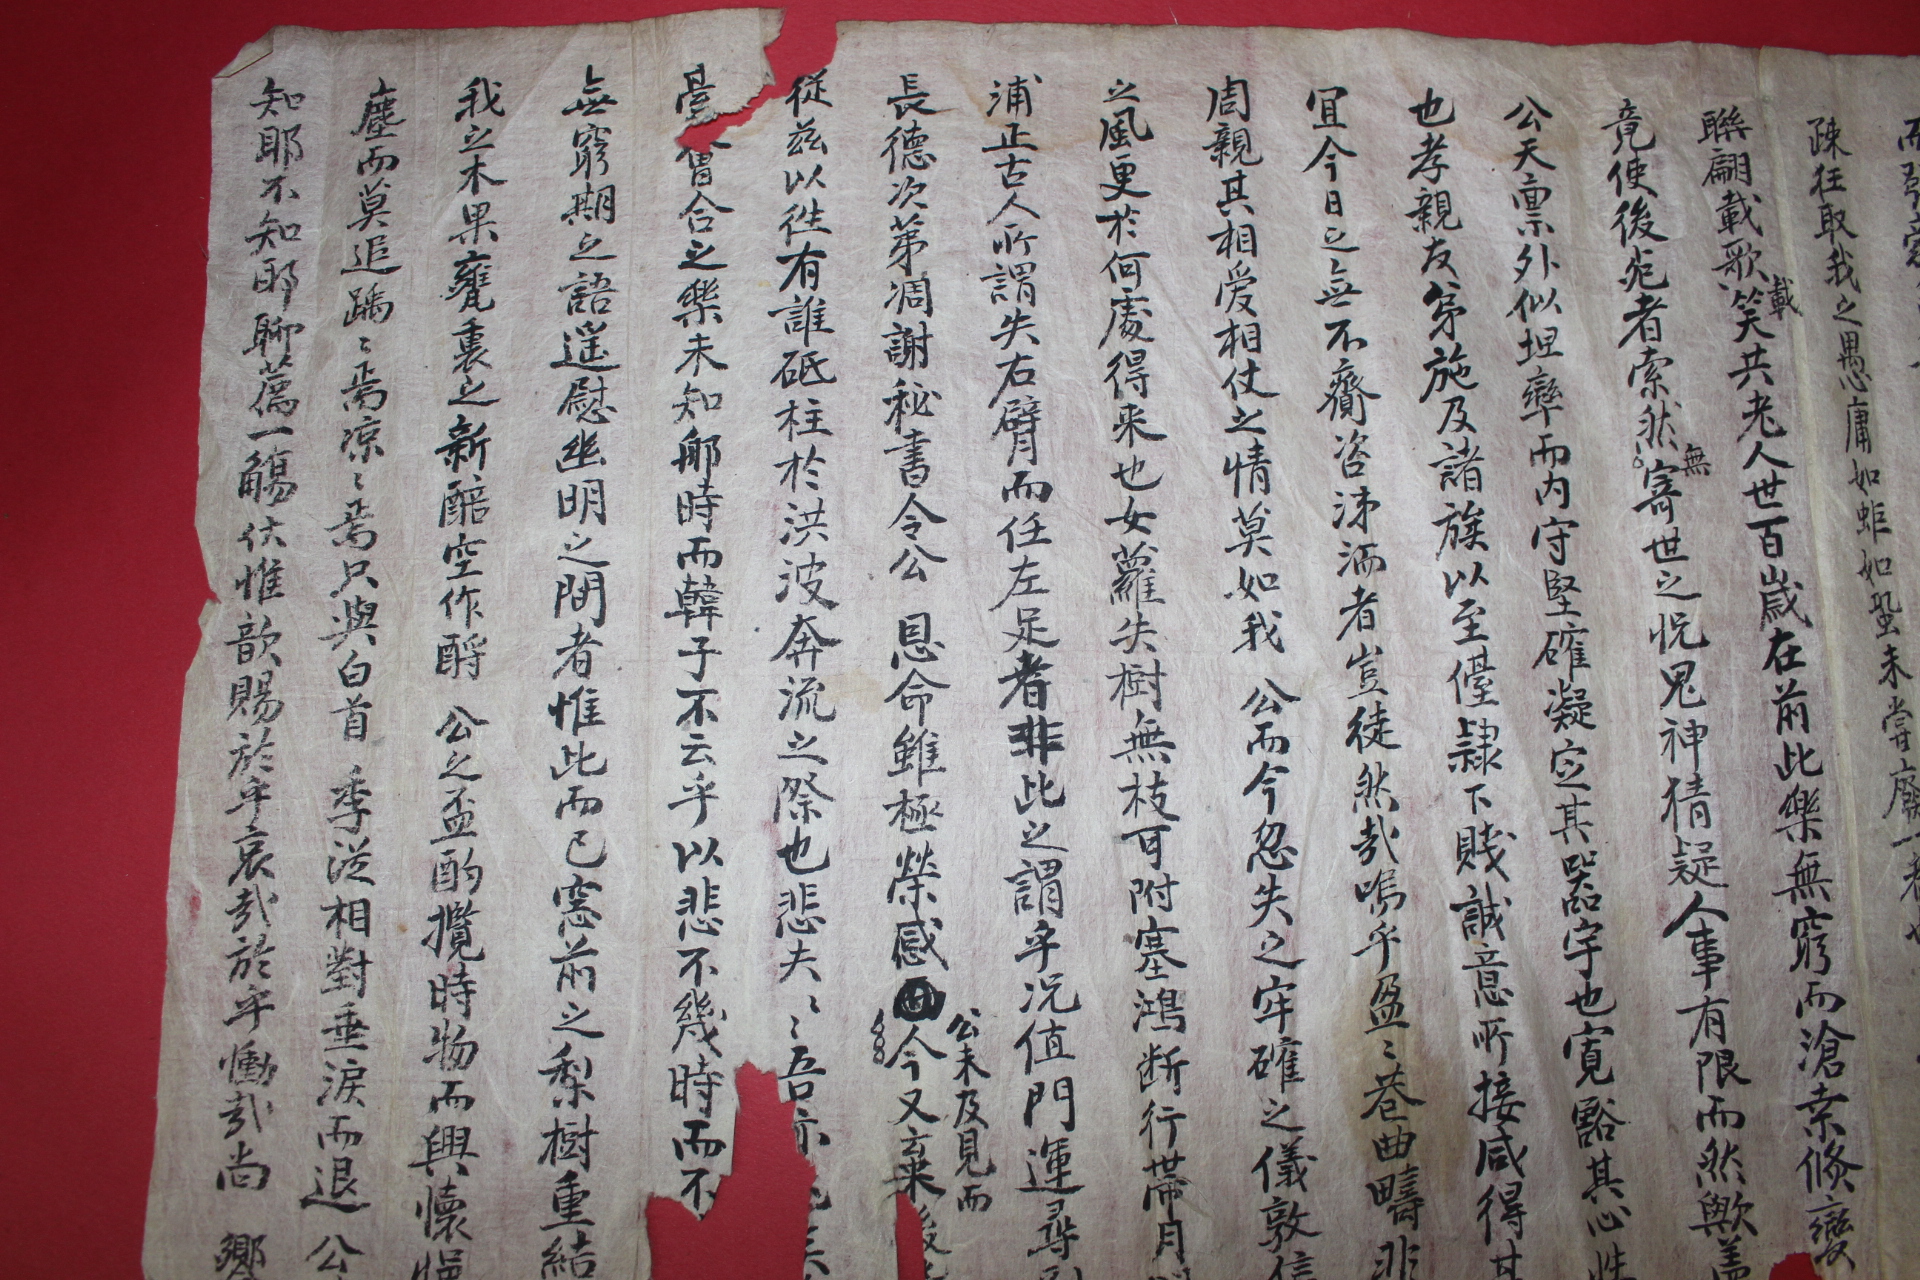 疎狂取我之愚庸如蚷如蛩未嘗廢一
聯翩載歌載笑共老人世百歲在前此樂無窮而滄桑倐變
竟使後死者索然無寄世之怳鬼神猜疑人事有限而然歟盖
公天禀外似坦率而內守堅確凝定其器宇也寬豁其心性
也孝親友弟施及諸族以至僮隷下賤誠意所接咸得其
宜今日之無不齎咨涕洒者豈徒然哉嗚乎盈〻巷曲疇非
周親其相爱相仗之情莫如我 公而今忽失之牢確之儀敦信
之風更於何處得来也女蘿失樹無枝可附塞鴻断行帶月
浦正古人所謂失右臂而任左足者非此之謂乎况値門運尋
長德次第凋謝秘書令公 恩命雖極榮感公未及見而今又棄
從玆以徃有誰砥柱於洪波奔流之際也悲夫〻〻吾亦
曾合之樂未知耶時而韓子不云乎以悲不幾時而不
無窮期之語遥慰幽明之間者惟此而已窓前之梨樹重結
我之木果甕裏之新醅空作酹 公之盃酌攬時物而興懷
塵而莫追踽〻焉凉〻焉只與白首 季從相對垂淚而退 公
知耶不知耶聊薦一觴伏惟歆賜於乎哀哉於乎慟哉尚 饗